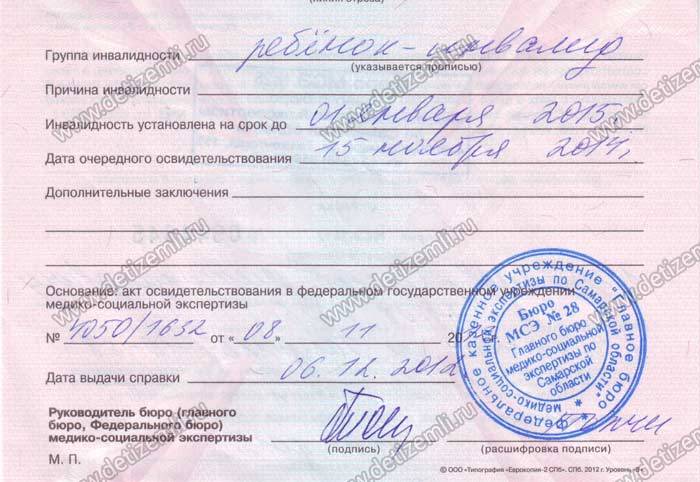 (линия отреза)
Группа инвалидности ребёнок-инвалид
(указывается прописью)
Причина инвалидности
Инвалидность установлена на срок до 01 января 2015,
Дата очередного освидетельствования 15 ноября 2014,
Дополнительные заключения
Основание: акт освидетельствования в федеральном государственном учреждении
медико-социальной экспертизы
№ 4050/1632 от «08» 11 201 г.
Дата выдачи справки 06.12.2012
Руководитель бюро (главного
бюро, Федерального бюро)
медико-социальной экспертизы
(подпись) (расшифровка подписи)
М. П.
© ООО «Типография «Еврокопия-2 СПб». СПб. 2012 г. Уровень «В»
Федеральное казенное учреждение "Главное бюро
медико-социальной экспертизы по Самарской области"
Бюро
МСЭ № 28
Главного бюро
медико-социальной
экспертизы по
Самарской
области
www.detizemli.ru